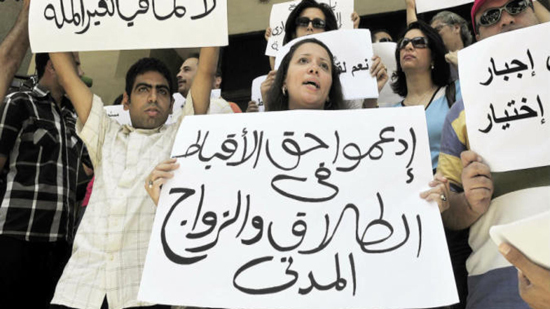 لا
لغير الملة
نعم
إجبار
إختيار
إدعموا حق الأقباط
في
الطلاق والزواج
المدني